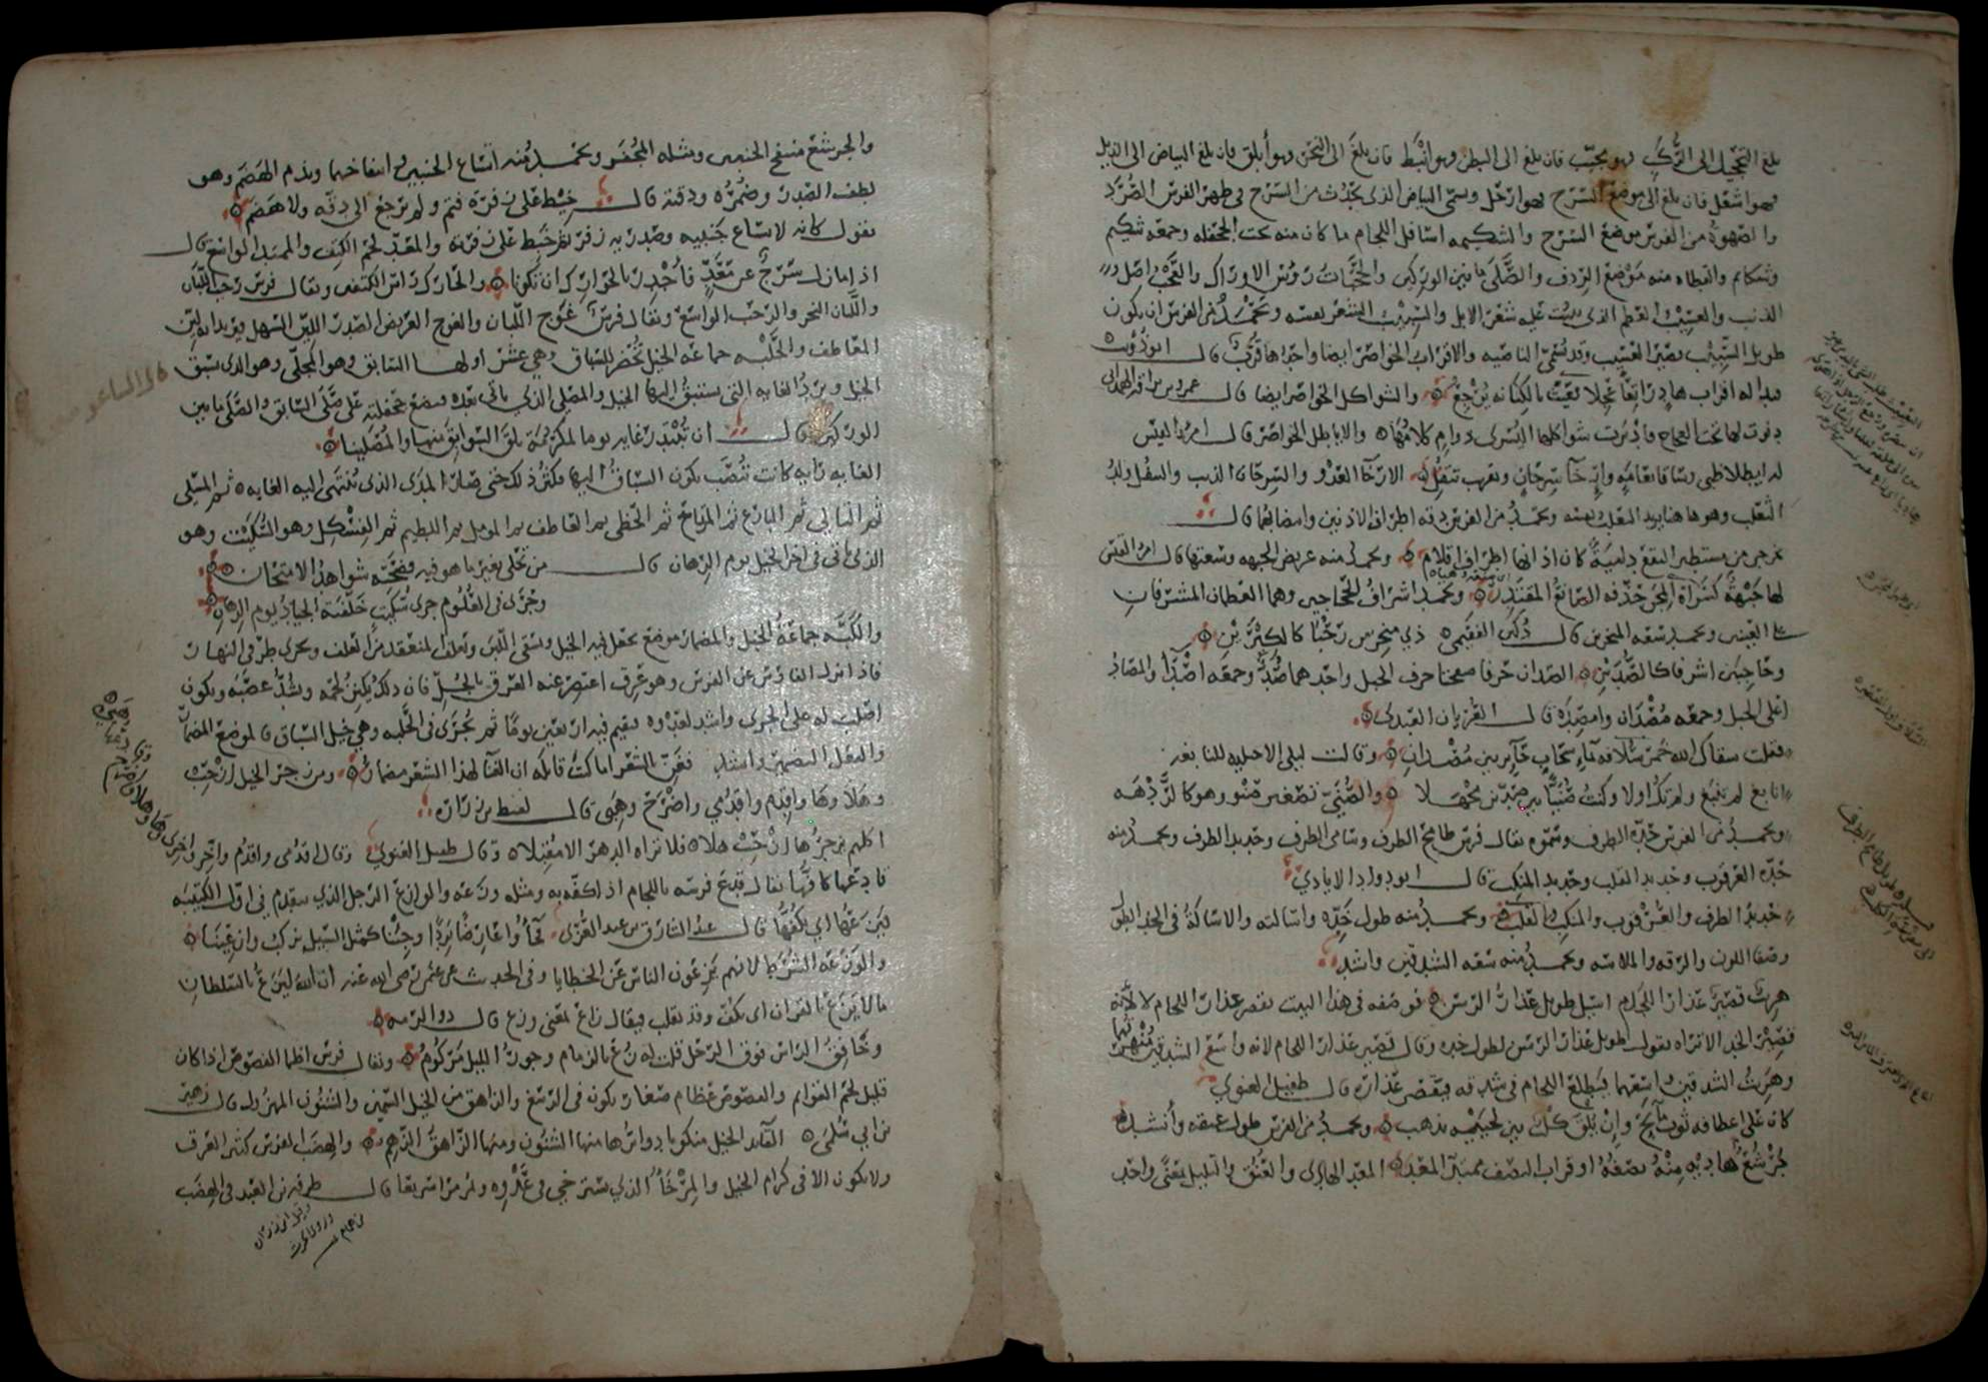 بلغ التحجيل الى الرُّكَب فهو مجبّب فان بلغ الى البطن فهو انْبَط فان بلغ الى النحر فهو أبلق فان بلغ البياض الى الذيل
فهو اشعَل فان بلغ الى موضع السّرج فهو ارْحَل ويسمّى البياض الذى يحدُث من السّرج فى ظهر الفرس الصُّرَد
والصّهوة من الفرس موضع السّرج والشكيمه اسافل اللجام ما كان منه تحت الجحفله وجمعه شكيم
وشكائم والقطاه منه مَوْضع الرّدف والصَّلَى ما بين الوركين والحَجَبات رؤس الاوراك والعَجْب اصل
الذنب والعسيب العظم الذى ينبت عليه شعر الذيل والسّبيب الشعر بعينه ويُحمَد من الفرس ان يكون
طويل السّبيب قصير العَسيب وقد تسمّى الناصيه والاقراب الخواصر ايضا واحدها قُرب قال ابو ذؤيب
فبدا له اقراب هادٍ رائغاً عَجِلا فعيّث بالكنانه يُرْجِعُ والشواكل الخواصر ايضا قال عمرو بن براقه الهمدانى
دفوت لها تحت العجاج فادبرت شواكلها اليُسرى دوامٍ كلامُها والاياطل الخواصر قال امرؤ القيس
له ايطلا ظبى وساقا نعامةٍ وإرخآ سِرحانٍ وتقريب تتفُل الارخآ العَدْو والسِرحان الذيب والتتفل ولدُ
الثعلب وهو هاهنا يريد الثعلب بعينه ويحمَد من الفرس دقه اطراف الاذنين وانتصابهما قال
يخرجن من مستطير النقع داميةً كان اذانها اطراف اقلام ويحمد منه عريض الجبهه وسعتها قال امرؤ القيس
لها جَبْهةٌ كسَراة المِجنّ حَذّفه الصّانع المقتدِر ويحمَد اشراف الحَجاجين وهما العظمان المشرفان
على العينين ويحمد سَعَه المنخرين قال دُكين الفقيمى ذى منخرين رَحُبَا كالكيرَيْنِ
وحَاجبَين اشرفا كالصُّدَّيْنِ الصّدان حَرفا صفحتا حرف الجبل واحدهما صُدّ وجمعه اصُدّ والمصَاد
اعلى الجبل وجمعه مُصْدَان وامصِده قال المُرزبان العبدى
فقلت سقاك الله خَمر سُلافه بمآءِ سحَابٍ حَآير بين مُصْدانِ وقالت ليلى الاخيليه للنابغه
انابغ لم تنبَغ ولم تك اولا وكنتُ صُنَيًّا بين صُدّين مَجْهلا والصُّنَىّ تصغير صنْو وهو كالرَّدْهَه
ويحمدُ من الفرس حِدّه الطرف وسُموّه يقال فرس طامح الطرف وسَامى الطرف وحَديد الطرف ويحمد منه
حِدّه العُرقوب وحديد القلب وحَديد المَنكِب قال ابو دواد الايادى
حَديدُ الطرف والعُرْقوب والمنكبِ والقَلب ويحمدُ منه طول خَدّه واسالته والاسَالةُ فى الخد الطول
وصفا اللون والرقه والملاسه ويحمدُ منه سَعَه الشدقين وانشد
هِرت قصيرُ عَذار اللجام اسيل طويل عَذار الرّسن فوصَفه فى هذا البيت بقصر عِذار اللجام لا لانّه
قصير الخد الا تراه يقول طويل عذار الرَسَن لطول خده وقال قصير عذار اللجام لانه واسع الشدقين
وهَرتُ الشدقين واسِعُهما فيَطلع اللجام فى شدقه فيَقصر عذاره قال طفيل الغنوى
كان على اعطافه ثوب مآئِحٍ وان يُلقَ كلب بين لحيَيْه يَذهبِ ويحمدُ من الفرس طول عنقه وأنشد
جُرْشُعٌ هاديه مِنْهُ نصفُهُ او قراب النصف ممتدّ المعَدّ الهادى والعُنُق والتليل بمعنًى واحد
والجُرشع منتفخ الجنبين ومثله المُجفَر ويحمَد منه اتّساع الجنبين وانتفاخهما ويذم الهضَم وهو
لطف الصّدر وضُمْره ودقته قال خِيْط على زَفْرَة فتمّ ولم يرجع الى دقّه ولا هضَم
يقول كانه لاتساع جَنبيه وصَدره زفر ثم خِيط على زفرته والمَعَدّ لحم الكتف والممتد الواسع قال
اذا ما زال سَرْجٌ عن مَعَدٍّ فأجْدِر بالحوارك ان تكونا والحَارك رَاس الكتف ويقال فرس رَحب اللّبان
واللَّبان النحر والرّحب الواسع ويقال فرس غَوج اللّبان والغوج العريض الصّدر الليّن السّهل يريد انه ليّن
المعَاطف والحَلْبه جماعه الخيل تُحضر للسّباق وهى عشرٌ اولها السابق وهو المُجلّى وهو الذى سَبَق
الخيل وبرزَ الغايه التى يستبقُ اليها الخيل والمصَلّى الذى ياتى بعده ويضع جحفلته على صَلَى السّابق والصَّلَى ما بين
الوركين قال ان تُبتَدر غايه يوما لمكرُمَة تلقَ السّوابق منها والمُصَلّينا
الغايه رايه كانت تُنصَب يكون السّباق اليها فكثر ذلك حَتى صَار المَدَى الذى يُنْتَهى اليه الغايه ثم المسَلّى
ثم التالى ثم البارع ثم المرتاح ثم الحَظى ثم العَاطف ثم المومل ثم اللطيم ثم الفِسْكِل وهو السُّكَيت وهو
الذى ياتى فى اخر الخيل يوم الرّهان قال من تحَلّى بغير ما هو فيه فضحَتْه شواهدُ الامتحان
وجَرَى فى العُلوم جرىَ سُكَيتٍ خَلّفَتهُ الجيادُ يوم الرِهانِ
والكَبَّه جماعَةُ الخيل والمضمَار موضع يحفل فيه الخيل وتسقى اللّبَن ويقلّل لمنعقد من العَلف ويجرى طرَفى النهار
فاذا نزل الفارس عن الفرس وهو عَرِق اعتصِر عنه العَرق بالجُلّ فان ذلك يكنز لحمه ويشدّ عصَبَه ويكون
اصْلَب له على الجرى واشد لعَدْوه يقيم فيه اربعين يومًا ثم يُجْرَى فى الحَلبه وهى خيل السّباق فالموضع المضمار
والفعل التضمير وانشد تغنّ بالشعر اما كنتَ قائله ان الغنآ لهذا الشعر مضمار ومن زجر الخيل ارْحَبْ
وهَلا وهَا واقدِم واقدُمى واضْرَح وهِقَى قال لقيط بن زراره
اكلهم يزجرُها ارْحَبْ هلا فلا تراه الدهرَ الا مُقبِلا وقال طفيل الغنوى وقال اقدُمى واقدُم وأخّر
قادعها كافّها يقال قدَع فرسَه باللجام اذا كفّه به ومثله وزَعَه والوازعُ الرّجل الذى يتقدم فى اول الكتيبه
فيَزعُها اى يكُفُّها قال عبد الشارق بن عبد العُزّى فجَآءُوا عَارضًا بَرِدًا وجِئْنا كمثل السّيل نركبُ وازِعِينا
والوَزَعَه الشُّرَط لانهم يَزِعُون الناس عن الخطايا وفى الحديث عن عُمر رضى الله عَنه ان اللهَ ليَزَعُ بالسّلطان
ما لا يَزَع بالقران اى يكُفّ وقد يقلب فيقال زاعَ بمعنى وزع قال ذو الرمه
وخَافِق الرّاس فوق الرّحل قلتُ له زُع بالزمام وجوزُ الليل مَركُومُ ويقال فرس اظما الفصُوص اذا كان
قليل لحم القوائم والفصُوص عظام صغار تكون فى الرّسغ والزاهق من الخيل السّمين والشنُون المهزول قال زهير
بن ابى سُلمى القائد الخيل منكوبا دوابرها منها الشنُون ومنها الزّاهق الزّهِم والهِضَبّ الفرس كثير العَرَق
ولا يكون الا فى كرام الخيل والمِرْخآءُ الذى يسترخى فى عَدْوِه ولم يمر سَريعًا قال طرفه بن العَبد فى الهِضَب